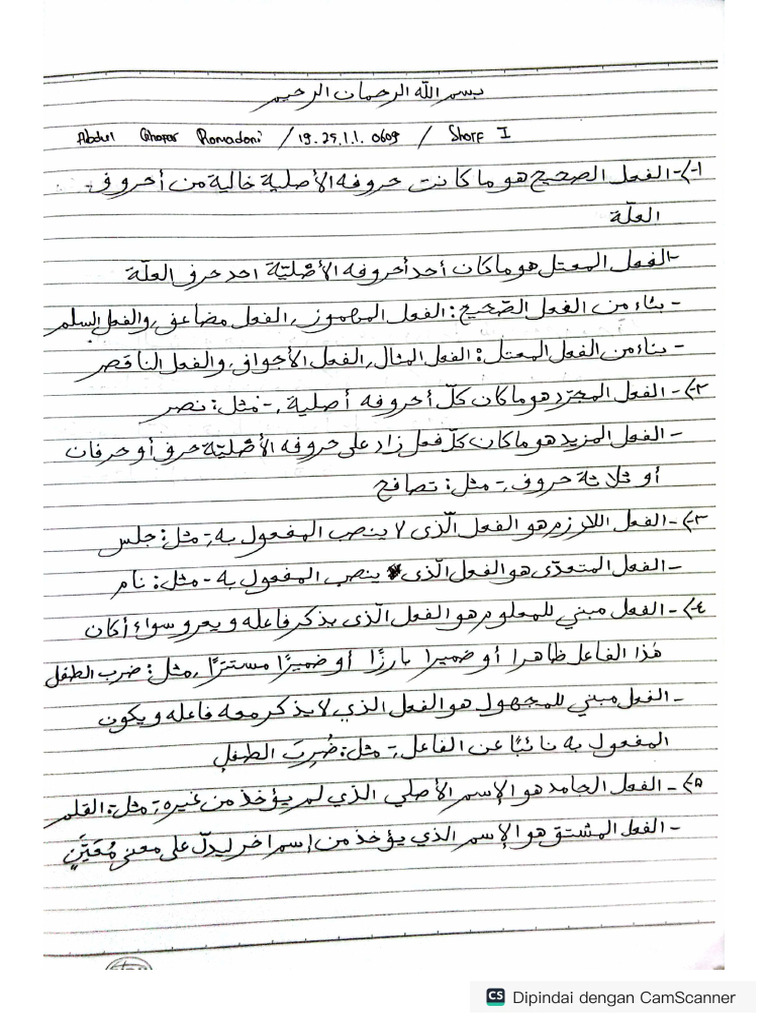 بسم الله الرحمان الرحيم
Abdul Ghofar Romadoni / 19.25.1.1.0609 / Shorf I
١-)- الفعل الصحيح هو ما كانت حروفه الأصلية خالية من أحروف
العلّة
- الفعل المعتل هو ما كان أحد أحروفه الأصْليّة احد حرف العلّة
- بناء من الفعل الصّحيح : الفعل المهموز, الفعل مضاعف, والفعل السلم
- بناء من الفعل المعتل : الفعل المثال, الفعل الأجواف, والفعل الناقصر
٢-)- الفعل المجرّد هو ما كان كلّ أحروفه أصلية, - مثل : نصر
- الفعل المزيد هو ما كان كلّ فعل زاد على حروفه الأصْليّة حرف أو حرفان
أو ثلاثة حروف, - مثل : تصافح
٣-)- الفعل اللازم هو الفعل الّذى لا ينصب المفعول به, - مثل : جلس
- الفعل المتعدّى هو الفعل الّذى ينصب المفعول به - مثل : نام
٤-)- الفعل مبني للمعلوم هو الفعل الّذى يذكر فاعله و يعرو سواء أكان
هٰذا الفاعل ظاهرا أو ضميرا بارزًا أو ضميرًا مستترًا, مثل : ضرب الطفل
- الفعل مبني للمجهول هو الفعل الذي لا يذكر معه فاعله و يكون
المفعول به نائبًا عن الفاعل, - مثل : ضُرِبَ الطفل
٥-)- الفعل الجامد هو الإسم الأصلي الذي لم يؤخذ من غيره, - مثل : القلم
- الفعل المشتق هو الإسم الذي يؤخذ من إسم اخر ليدلّ على معنى مُعَيَّنٍ
CS Dipindai dengan CamScanner